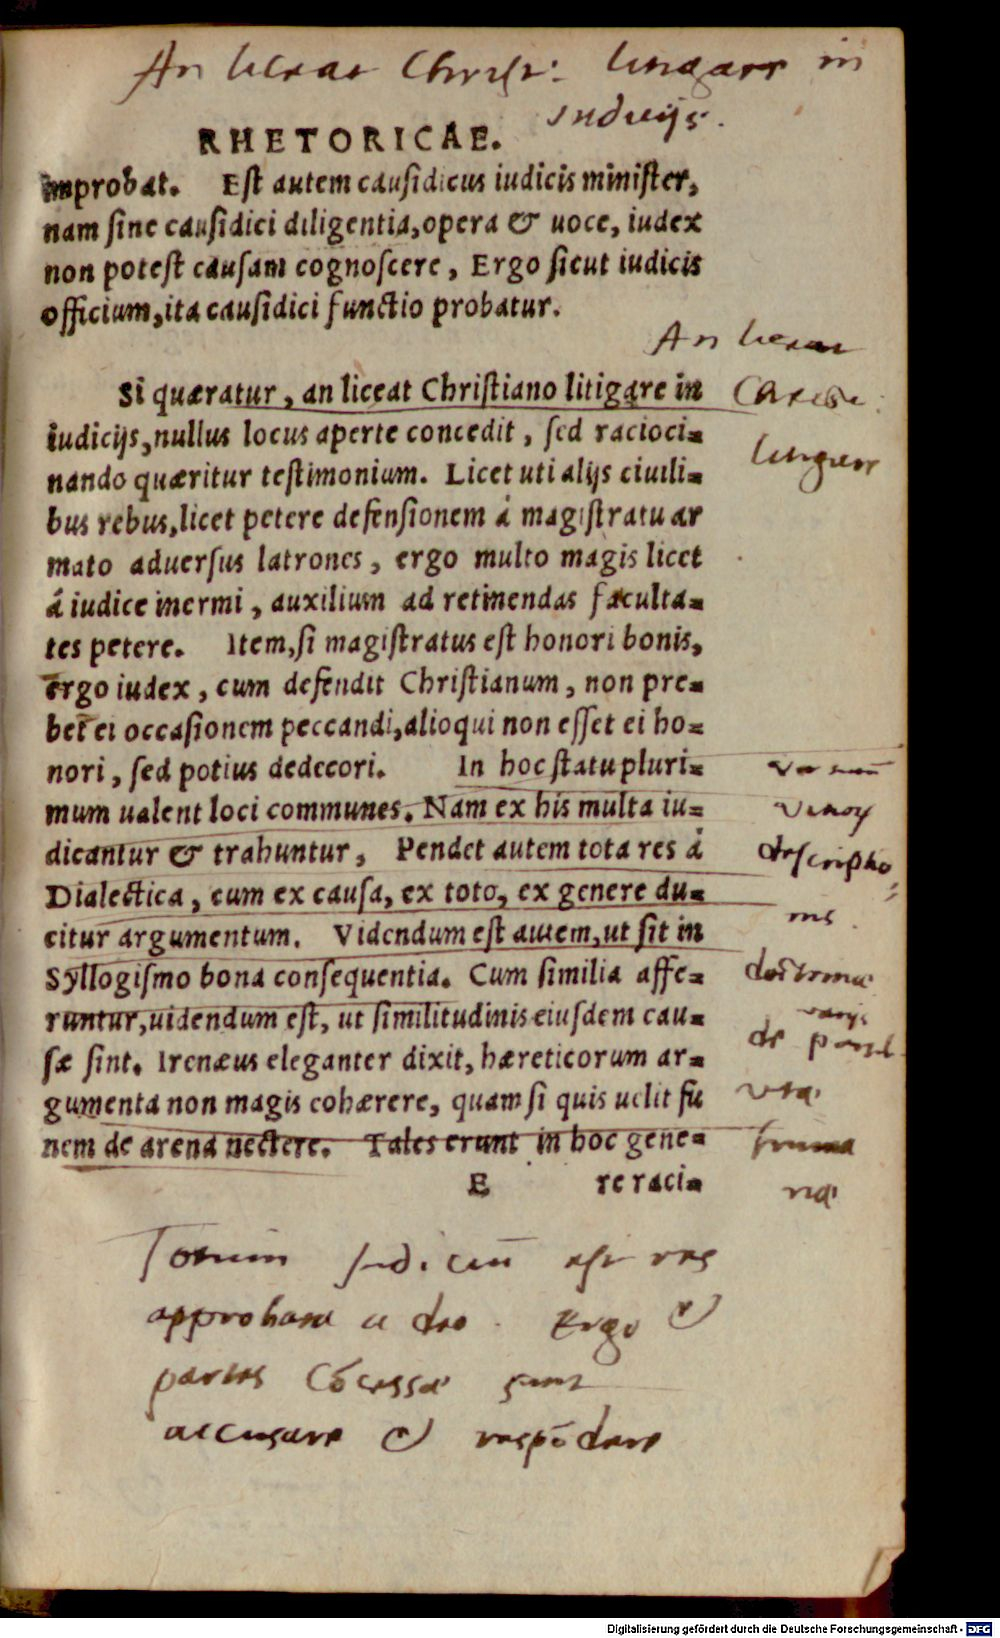 An liceat Christ: litigare in
Iudicijs.
RHETORICAE.
improbat. Est autem causidicus iudicis minister,
nam sine causidici diligentia, opera & uoce, iudex
non potest causam cognoscere, Ergo sicut iudicis
officium, ita causidici functio probatur.
An liceat
Christi:
litigare
Si quæratur, an liceat Christiano litigare in
iudicijs, nullus locus aperte concedit, sed racioci=
nando quæritur testimonium. Licet uti alijs ciuili=
bus rebus, licet petere defensionem á magistratu ar
mato aduersus latrones, ergo multo magis licet
á iudice inermi, auxilium ad retinendas faculta=
tes petere. Item, si magistratus est honori bonis,
ergo iudex, cum defendit Christianum, non pre=
bet ei occasionem peccandi, alioqui non esset ei ho=
nori, sed potius dedecori. In hoc statu pluri=
mum ualent loci communes. Nam ex his multa iu=
dicantur & trahuntur, Pendet autem tota res á
Dialectica, cum ex causa, ex toto, ex genere du=
citur argumentum. Videndum est autem, ut sit in
Syllogismo bona consequentia. Cum similia affe=
runtur, uidendum est, ut similitudinis eiusdem cau=
sæ sint. Irenæus eleganter dixit, hæreticorum ar=
gumenta non magis cohærere, quam si quis uelit fu
nem de arena nectere. Tales erunt in hoc gene=
E re raci=
descriptio
de
Totum Iudiciū est res
approbata a deo. Ergo &
partes cōcessæ sunt
accusare & respōdere
Digitalisierung gefördert durch die Deutsche Forschungsgemeinschaft - DFG